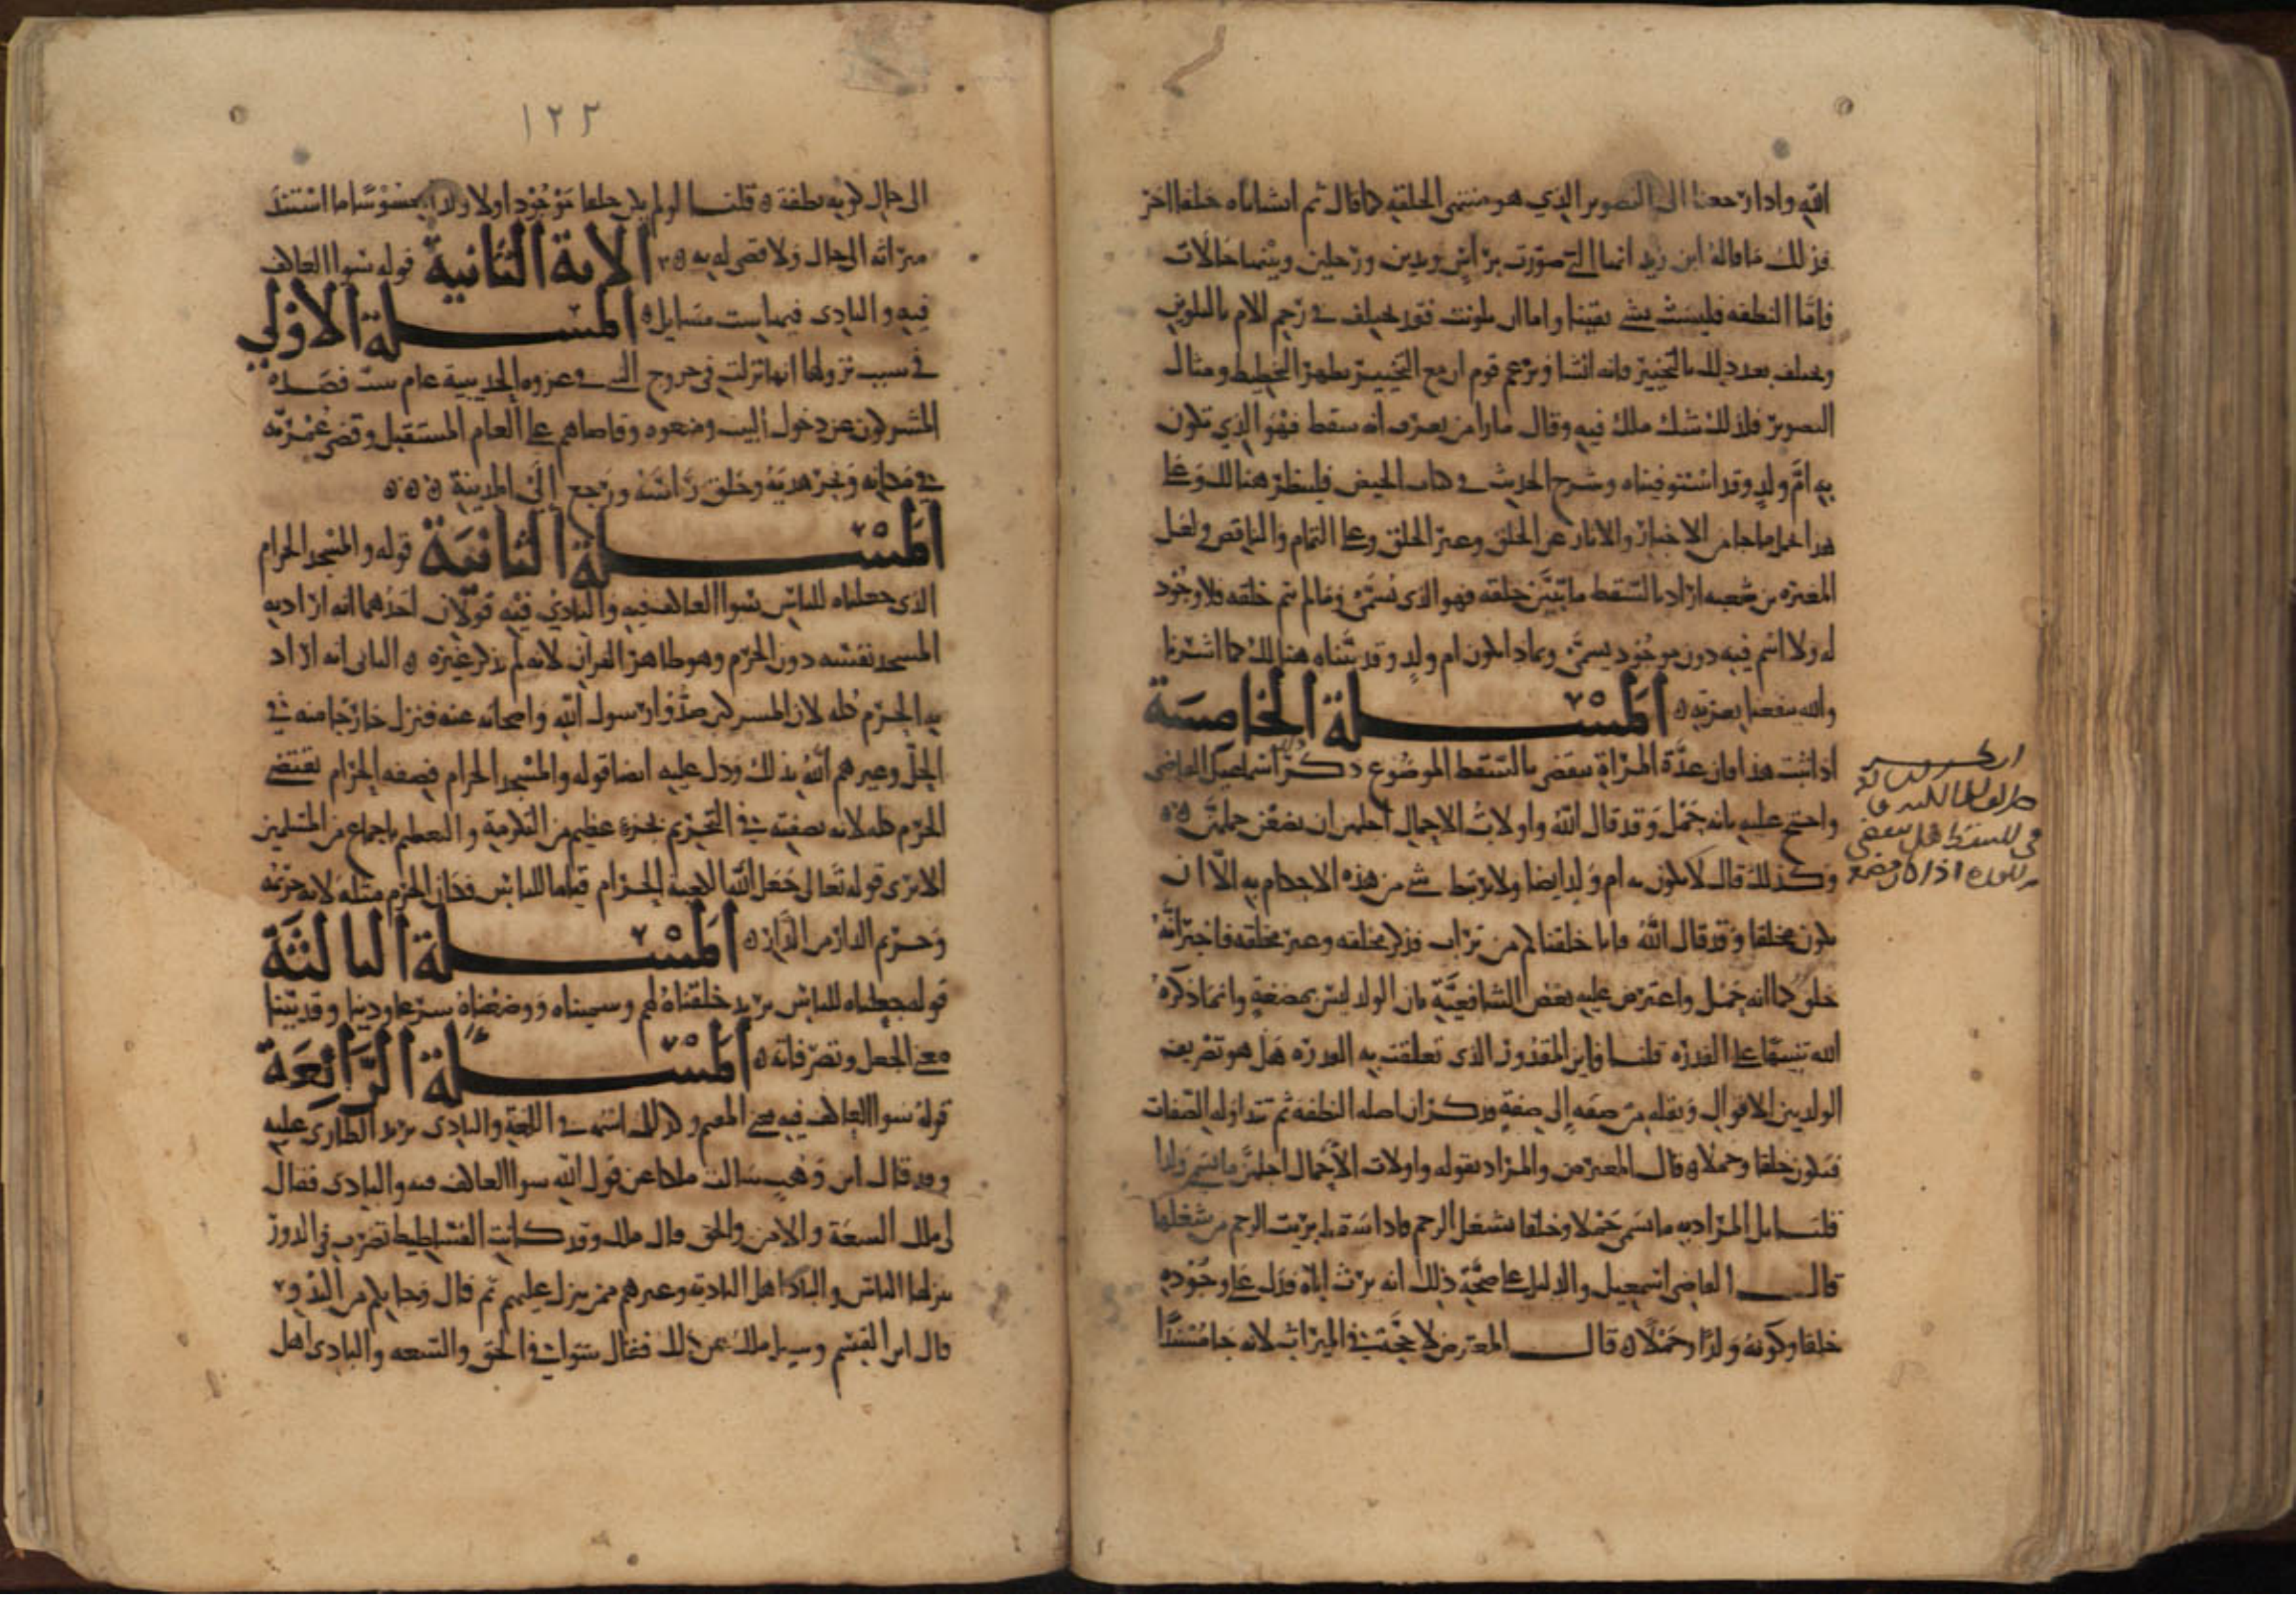 الله واذا رجعنا الى التصوير الذي هو منتهى الخلقة كما قال ثم انشاناه خلقا اخر
فذلك ما قاله ابن زيد انها التي صورت براس ويدين ورجلين وبينهما حالات
فاما النطفة فليست بشي يقينا واما ان تلونت فقد تخلقت في رحم الام بالتلوين
وتخلقت بعد ذلك بالتخثير فانه انشا ويزعم قوم ان مع التخثير يظهر التخطيط ومثال
التصوير فلذلك شك ملك فيه وقال ما ارا من يعرف انه سقط فهو الذي تكون
به ام ولد وقد استوفيناه وشرح الحديث في كتاب الحيض فلينظر هنالك وعلى
هذا يحمل ما جا من الاخبار والاثار عن الخلق وغير الخلق وعلى التمام والناقص ولعل
المغيرة بن شعبه اراد بالسقط ما تبين خلقه فهو الذي يسمى وما لم يتم خلقه فلا وجود
له ولا اسم فيه دون موجود يسمى وبماذا تكون ام ولد وقد بيناه هنالك كما اشرنا
والله ينفعنا بعزته ه المسلة الخامسة
اذا ثبت هذا فان عدة المراة تنقضي بالسقط الموضوع ذكره اسماعيل القاضي
واحتج عليه بانه حمل وقد قال الله واولات الاحمال اجلهن ان يضعن حملهن ه ه
وكذلك قال لا تكون به ام ولد ايضا ولا يرتبط شي من هذه الاحكام به الا ان
يكون مخلقا وقد قال الله فانا خلقناكم من تراب فذكر مخلقه وغير مخلقه فاخبر انه
خلق كما انه حمل واعترض عليه بعض الشافعية بان الولد ليس بمضغة وانما ذكره
الله تنبيها على القدرة قلنا فاين المقدور الذي تعلقت به القدرة هل هو تصريف
الولد بين الاقوال ونقله من صفة الى صفة فذكر ان اصله النطفة ثم تتداوله الصفات
فيكون خلقا وحملا ه قال المعترض والمراد بقوله واولات الاحمال اجلهن ما يسمى ولدا
قلنا بل المراد به ما يسمى حملا وخلقا يشغل الرحم فاذا سقط بريت الرحم من شغلها
قال القاضي اسمعيل والدليل على صحة ذلك انه يرث اباه فدل على وجوده
خلقا وكونه ولدا وحملا ه قال المعترض لا حجة في الميراث لانه جا مستندا
الى حال كونه نطفة ه قلنا لو لم يكن خلقا موجودا ولا ولدا محسوسا ما استند
ميراثه الى حال ولا قضي له به ه الاية الثانية قوله سوا العاكف
فيه والبادى فيها ست مسايل ه المسلة الاولى
في سبب نزولها انها نزلت في خروج النبي في غزوة الحديبية عام ست فصده
المشركون عن دخول البيت ومنعوه وقاضاهم على العام المستقبل وقضى عمرته
في مكانه ونحر هديه وحلق راسه ورجع الى المدينة ه ه ه
المسلة الثانية قوله والمسجد الحرام
الذي جعلناه للناس سوا العاكف فيه والبادي فيه قولان احدهما انه اراد به
المسجد نفسه دون الحرم وهو ظاهر القران لانه لم يذكر غيره ه الثاني انه اراد
به الحرم كله لان المشركين صدوا رسول الله واصحابه عنه فنزل خارجا منه في
الحل وعيرهم الله بذلك ودل عليه ايضا قوله والمسجد الحرام فصفة الحرام تقتضي
الحرم كله لانه بصفته في التحريم بجزء عظيم من التكرمة والتعظيم باجماع من المسلمين
الا ترى قوله تعالى جعل الله الكعبة الحرام قياما للناس فكان الحرم مثله لانه حرمه
وحريم الدار من الدار ه المسلة الثالثة
قوله جعلناه للناس يريد خلقناه لهم وسميناه ووضعناه شرعا ودينا وقد بينا
معنى الجعل وتصرفاته ه المسلة الرابعة
قوله سوا العاكف فيه يعني المقيم وكذلك اسمه في اللغة والبادي يريد الطاري عليه
وقد قال ابن وهب سالت ملكا عن قول الله سوا العاكف فيه والبادي فقال
لى ملك السعة والامن والحق قال ملك وقد كانت الفساطيط تضرب في الدور
ينزلها الناس والبادا اهل البادية وغيرهم ممن ينزل عليهم ثم قال وجا بكم من البدو
قال ابن القسم وسيل ملك عن ذلك فقال سوا في الحق والسعه والبادي اهل
١٢٢